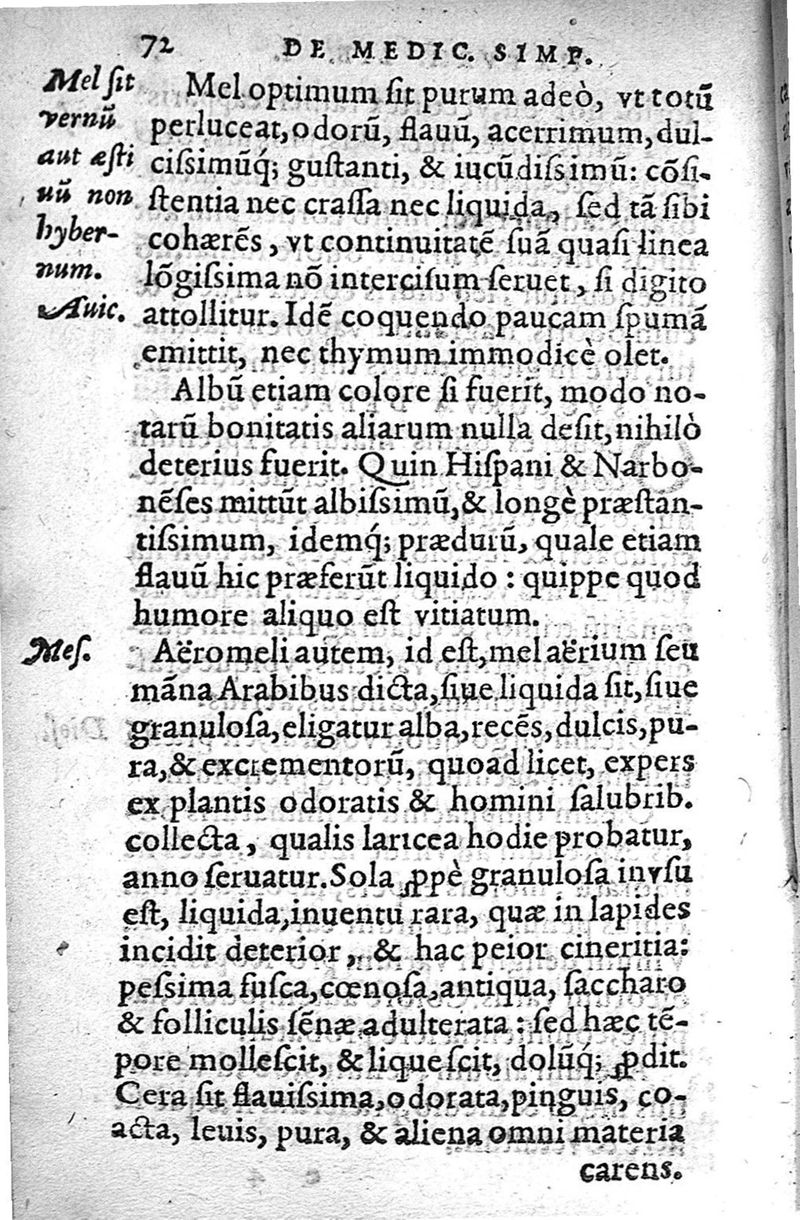 72 DE MEDIC. SIMP.
Mel sit
vernũ
aut æsti
uũ non
hyber-
num.
Auic.
Mel optimum ſit purum adeò, vt totũ
perluceat, odorũ, flauũ, acerrimum, dul-
ciſsimũq́; guſtanti, & iucũdiſsimũ: cõſi-
ſtentia nec craſſa nec liquida, ſed tã ſibi
cohærẽs, vt continuitatẽ ſuã quaſi linea
lõgiſsima nõ interciſum ſeruet, ſi digito
attollitur. Idẽ coquendo paucam ſpumã
emittit, nec thymum immodicè olet.
Albũ etiam colore ſi fuerit, modo no-
tarũ bonitatis aliarum nulla deſit, nihilò
deterius fuerit. Quin Hiſpani & Narbo-
nẽſes mittũt albiſsimũ, & longè præſtan-
tiſsimum, idemq́; prædurũ, quale etiam
flauũ hic præferũt liquido : quippe quod
humore aliquo eſt vitiatum.
Meſ.
Aëromeli autem, id eſt, mel aërium ſeu
mãna Arabibus dicta, ſiue liquida ſit, ſiue
granuloſa, eligatur alba, recẽs, dulcis, pu-
ra, & excrementorũ, quoad licet, expers
ex plantis odoratis & homini ſalubrib.
collecta, qualis laricea hodie probatur,
anno ſeruatur. Sola ꝓpè granuloſa in vſu
eſt, liquida, inuentu rara, quæ in lapides
incidit deterior, & hac peior cineritia:
peſsima fuſca, cœnoſa, antiqua, ſaccharo
& folliculis ſẽnæ adulterata : ſed hæc tẽ-
pore molleſcit, & liqueſcit, dolũq́; ꝓdit.
Cera ſit flauiſsima, odorata, pinguis, co-
acta, leuis, pura, & aliena omni materia
carens.